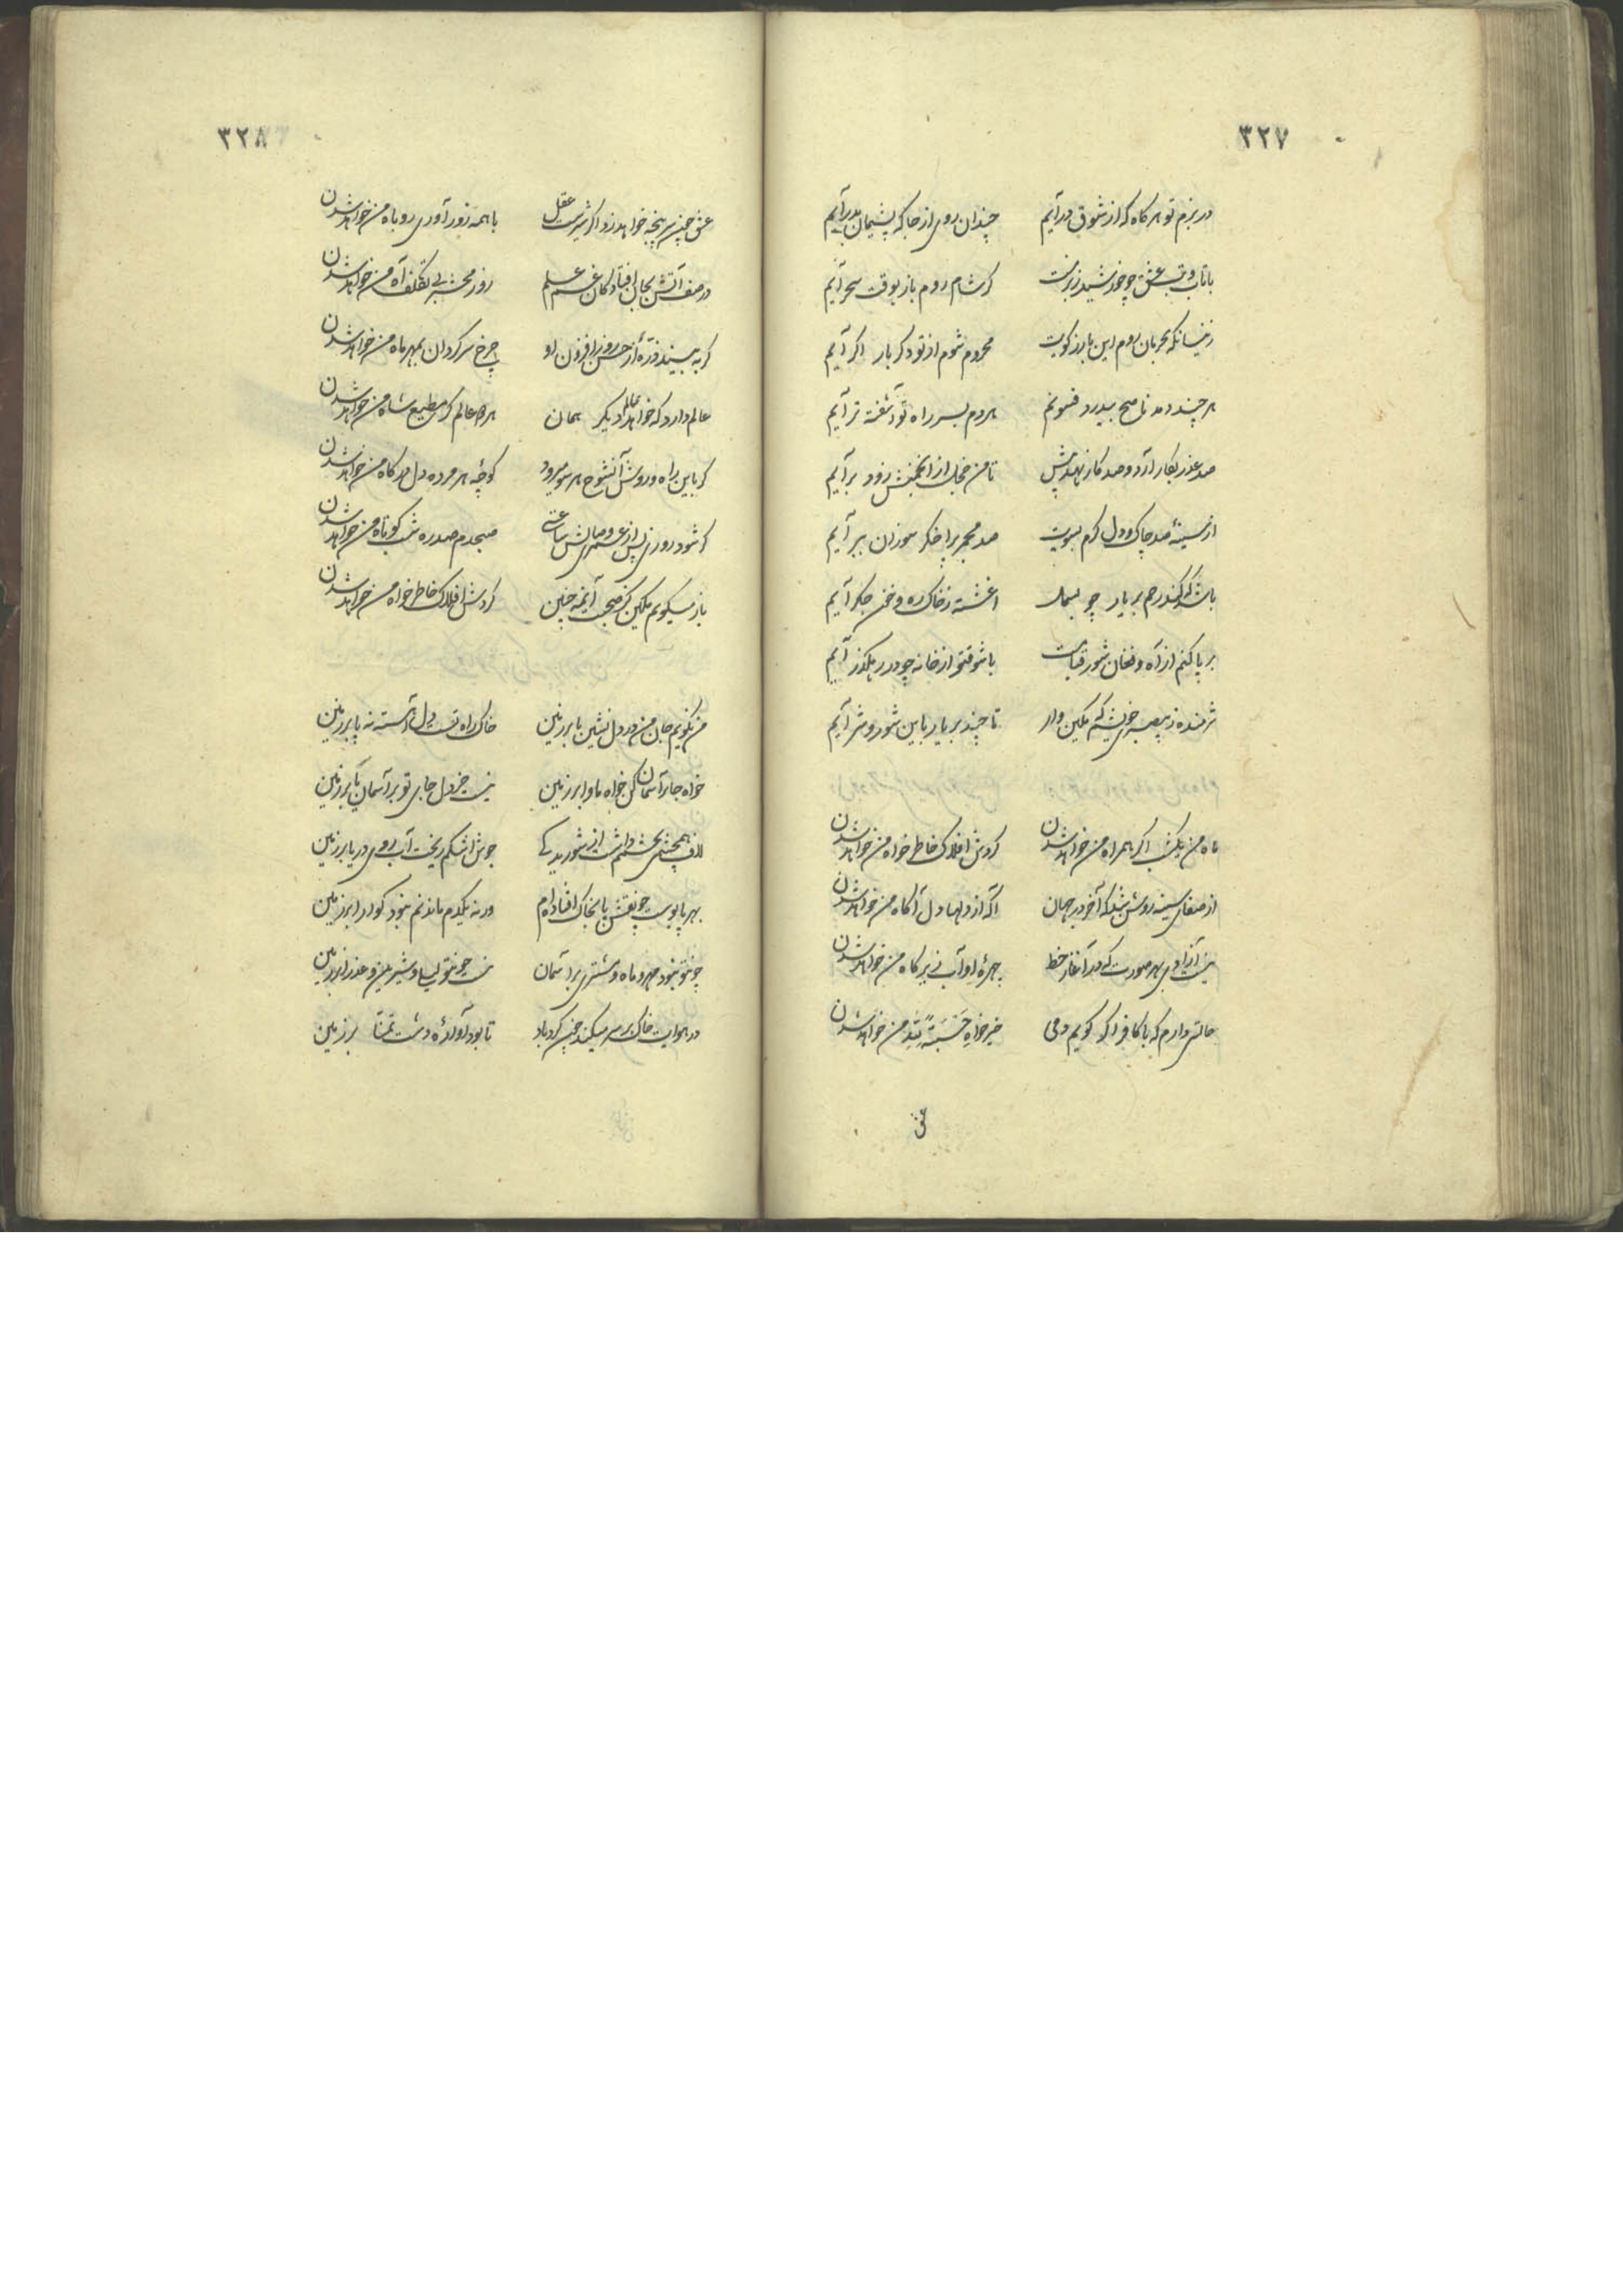 ۳۲۷
در بزم تو هر کاه که از شوق در آیم چندان روی از جا که پشیمان بدر آیم
با تاب و تب عشق چو خورشید ز برت کر شام روم باز بوقت سحر آیم
زینسانکه بحرمان روم این بار ز کویت محروم شوم از تو دکر بار اکر آیم
هر چند دمد ناصح بیدرد فسونم هر دم بسر راه تو آشفته تر آیم
صد عذر بکار آرد و صد کار نهد پیش تا من خجل از انجمنش زود بر آیم
از سینهٔ صد چاک و دل کرم بسویت صد مجمر پر اخکر سوزان ببر آیم
باشد که کند رحم بر یار چو بسمل اغشته ز خاک ره و خون جکر آیم
بر پا کنم از آه و فغان شور قیامت با شوق تو از خانه چو در رهکذر آیم
شرمنده ز بیصبری خویشم که مکین وار تا چند بر یار باین شور و شر آیم
ماه من یکشب اکر همراه من خواهد شدن کردش افلاک خاطر خواه من خواهد شدن
از صفای سینه روشن شد که آخر در جهان آکه از دلها دل آکاه من خواهد شدن
نیست آزادی بهر صورت که در آغاز خط چهرهٔ او آب زیر کاه من خواهد شدن
حالتی دارم که با کافر اکر کویم دمی خیر خواهِ حَسْبَةً لِلّه من خواهد شدن
عشق
۳۲۸
عشق چون سر پنجه خواهد زد اکر شیرست عقل با همه زور آوری روباه من خواهد شدن
در صف آتش بجان افتادکان غم علم روز محشر بی تکلف آه من خواهد شدن
کر به بیند ذرهٔ از حسن روز افزون او چرخ سر کردان بمهر ماه من خواهد شدن
عالم دارد که خواهد عالم دیکر همان هر دو عالم کر مطیع شاه من خواهد شدن
کر باین راه و روش آنشوخ هر سو میرود کوچهٔ هر مرده دل درکاه من خواهد شدن
کر شود روزی پس از عمری وصالش ساعتی صبحدم صد ره شب کوتاه من خواهد شدن
باز میکویم مکین کر صحبت آیمه چنین کردش افلاک خاطر خواه من خواهد شدن
من نکویم جان من در دل نشین یا بر زمین خاک راه تست دل آهسته نه پا بر زمین
خواه جا بر آسمان کن خواه ماوا بر زمین نیست جز دل جای تو بر آسمان یا بر زمین
لاف همچشمی بچشمم داشت از شوریدکی جوش اشکم ریخت آب روی دریا بر زمین
بهر پابوست چو نقش پا بخاک افتاده ام ور نه یکدم ماندنم نبود کوارا بر زمین
چون تو نبود مهر و ماه و مشتری بر آسمان نیست چون تو لیلی و شیرین و عذرا بر زمین
در هوایت خاک بر سر میکند چون کرد باد تا بود آوارهٔ دشت تمنا بر زمین